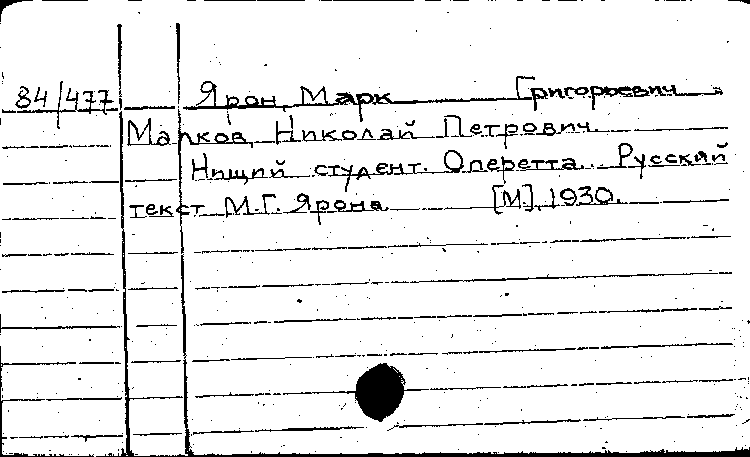 84/477 Ярон, Марк Григорьевич и
Малков, Николай Петрович.
Нищий студент. Оперетта... Русский
текст М.Г. Ярона. [М], 1930.